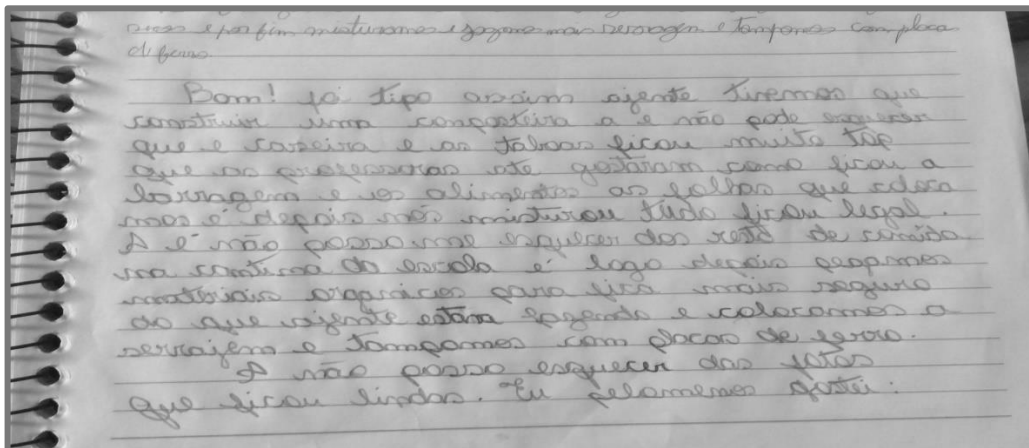 e por fim misturamos e jogamos mais serragem e tampamos com placa
di ferro
Bom! já tipo assim ajente tivemos que
construir uma composteira a e não pode esquecer
que e caseira e as taboas ficou muito top
que as professoras ate gostaram como ficou a
barragem e os alimentos as folhas que coloca
mos e depois nós misturou tudo ficou legal.
A e não posso me esquecer dos resto de comida
na cantina da escola é logo depois pegamos
matériais organicos para fica mais seguro
do que ajente estava fazendo e colocamos a
serrajem e tampamos com placas de ferro.
A não posso esquecer das fotos
que ficou lindas. Eu pelomenos gostei.